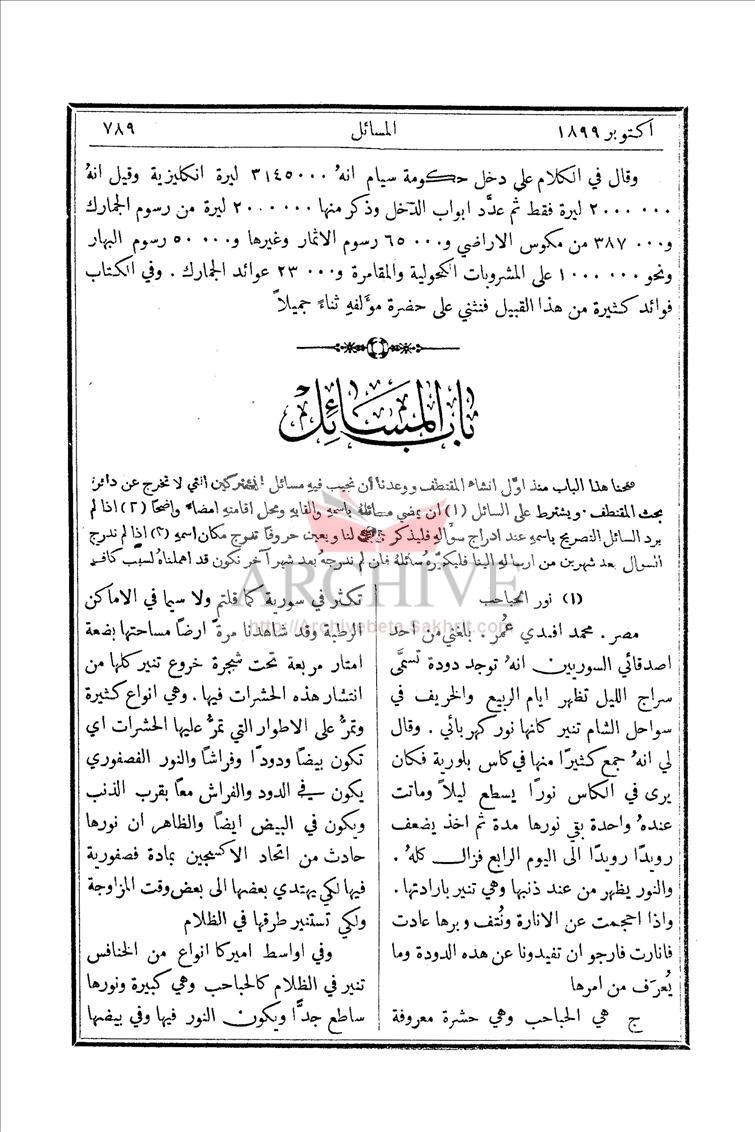 اكتوبر ١٨٩٩
المسائل
٧٨٩
وقال في الكلام على دخل حكومة سيام انهُ ٣١٤٥٠٠٠ ليرة انكليزية وقيل انهُ
٢٠٠٠٠٠٠ ليرة فقط ثم عدَّد ابواب الدخل وذكر منها ٢٠٠٠٠٠٠ ليرة من رسوم الجمارك
و٣٨٧٠٠٠ من مكوس الاراضي و٦٥٠٠٠ رسوم الاثمار وغيرها و٥٠٠٠٠ رسوم البهار
ونحو ١٠٠٠٠٠٠ على المشروبات الكحولية والمقامرة و٢٣٠٠٠ عوائد الجمارك . وفي الكتاب
فوائد كثيرة من هذا القبيل فنثني على حضرة مؤلفهِ ثناءً جميلاً
باب المسائل
فتحنا هذا الباب منذ اوَّل انشاء المقتطف ووعدنا أن نجيب فيهِ مسائل المشتركين التي لا تخرج عن دائرة
بحث المقتطف . ويشترط على السائل (١) ان يمضي مسائلهُ باسمهِ والقابهِ ومحل اقامتهِ امضاء واضحًا (٢) اذا لم
يرد السائل التصريح باسمهِ عند ادراج سؤالهِ فليذكر ذلك لنا ويعين حروفًا تدرج مكان اسمهِ (٣) اذا لم ندرج
السوال بعد شهرين من ارسالهِ الينا فليكررهُ سائلهُ فان لم ندرجهُ بعد شهر آخر نكون قد اهملناهُ لسبب كافٍ
(١) نور الحباحب
مصر . محمد افندي عُمر . بلغني من احد
اصدقائي السوريين انهُ توجد دودة تسمَّى
سراج الليل تظهر ايام الربيع والخريف في
سواحل الشام تنير كانها نور كهربائي . وقال
لي انهُ جمع كثيرًا منها في كاس بلورية فكان
يرى في الكاس نورًا يسطع ليلاً وماتت
عندهُ واحدة بقي نورها مدة ثم اخذ يضعف
رويدًا رويدًا الى اليوم الرابع فزال كلهُ .
والنور يظهر من عند ذنبها وهي تنير بارادتها .
واذا احجمت عن الانارة ونُتف وبرها عادت
فانارت فارجو ان تفيدونا عن هذه الدودة وما
يُعرَف من امرها
ج هي الحباحب وهي حشرة معروفة
تكثر في سورية كما قلتم ولا سيما في الاماكن
الرطبة وقد شاهدنا مرةً ارضًا مساحتها بضعة
امتار مربعة تحت شجرة خروع تنير كلها من
انتشار هذه الحشرات فيها . وهي انواع كثيرة
وتمرُّ على الاطوار التي تمرُّ عليها الحشرات اي
تكون بيضًا ودودًا وفراشًا والنور الفصفوري
يكون في الدود والفراش معًا بقرب الذنب
ويكون في البيض ايضًا والظاهر ان نورها
حادث من اتحاد الاكسجين بمادة فصفورية
فيها لكي يهتدي بعضها الى بعض وقت المزاوجة
ولكي تستنير طرقها في الظلام
وفي اواسط اميركا انواع من الخنافس
تنير في الظلام كالحباحب وهي كبيرة ونورها
ساطع جدًّا ويكون النور فيها وفي بيضها
ARCHIVE
http://Archivebeta.Sakhrit.com